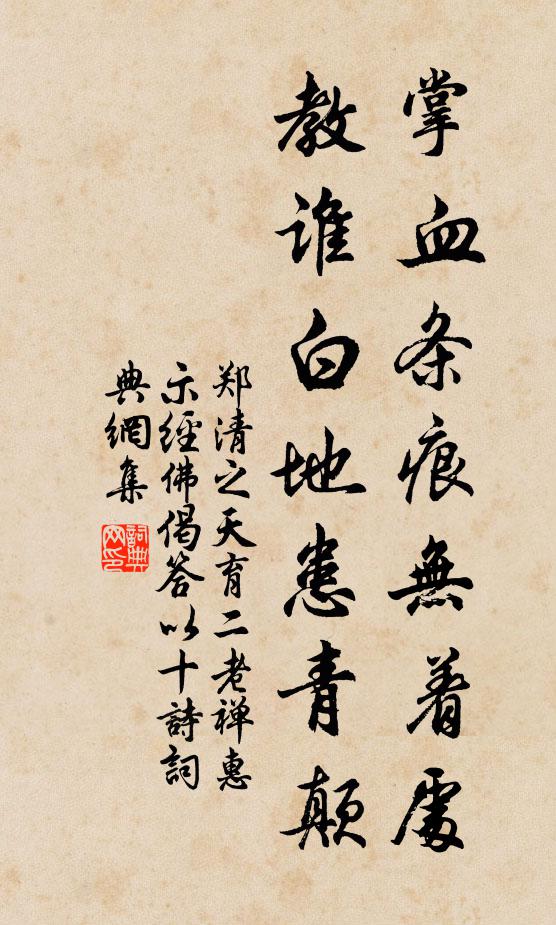 掌血条痕無着處
教谁白地患青颠
郑清之天育二老禅惠
示經佛偈答以十詩詞
典網集
詞典网印